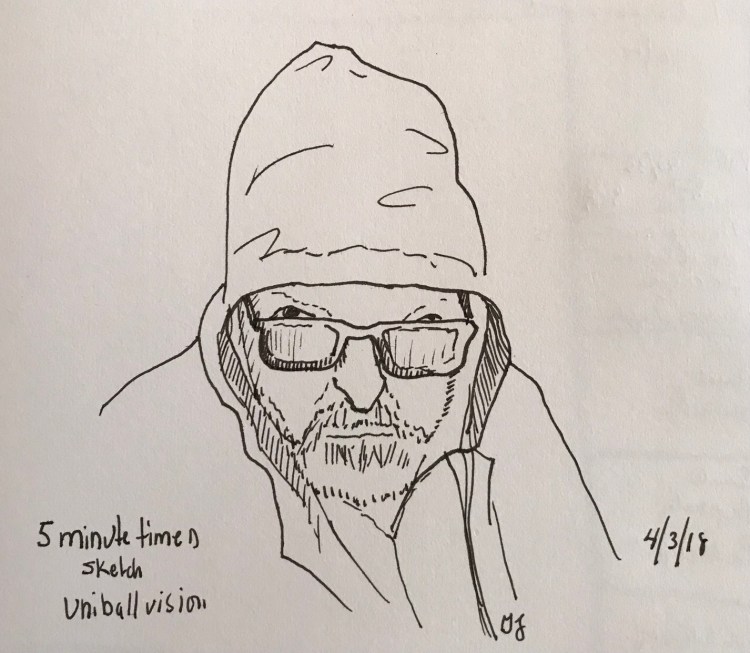 5 minute timed
sketch
Uniball vision
4/3/18